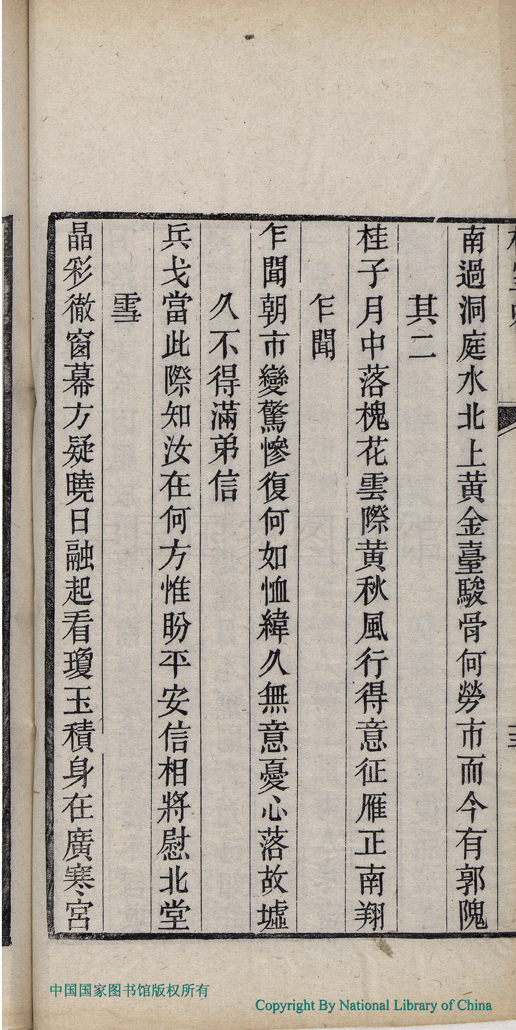 南過洞庭水北上黃金臺駿骨何勞市而今有郭隗
其二
桂子月中落槐花雲際黃秋風行得意征雁正南翔
乍聞
乍聞朝市變驚慘復何如恤緯久無意憂心落故墟
久不得滿弟信
兵戈當此際知汝在何方惟盼平安信相將慰北堂
雪
晶彩徹窗幕方疑曉日融起看瓊玉積身在廣寒宮
中国国家图书馆版权所有
Copyright By National Library of China